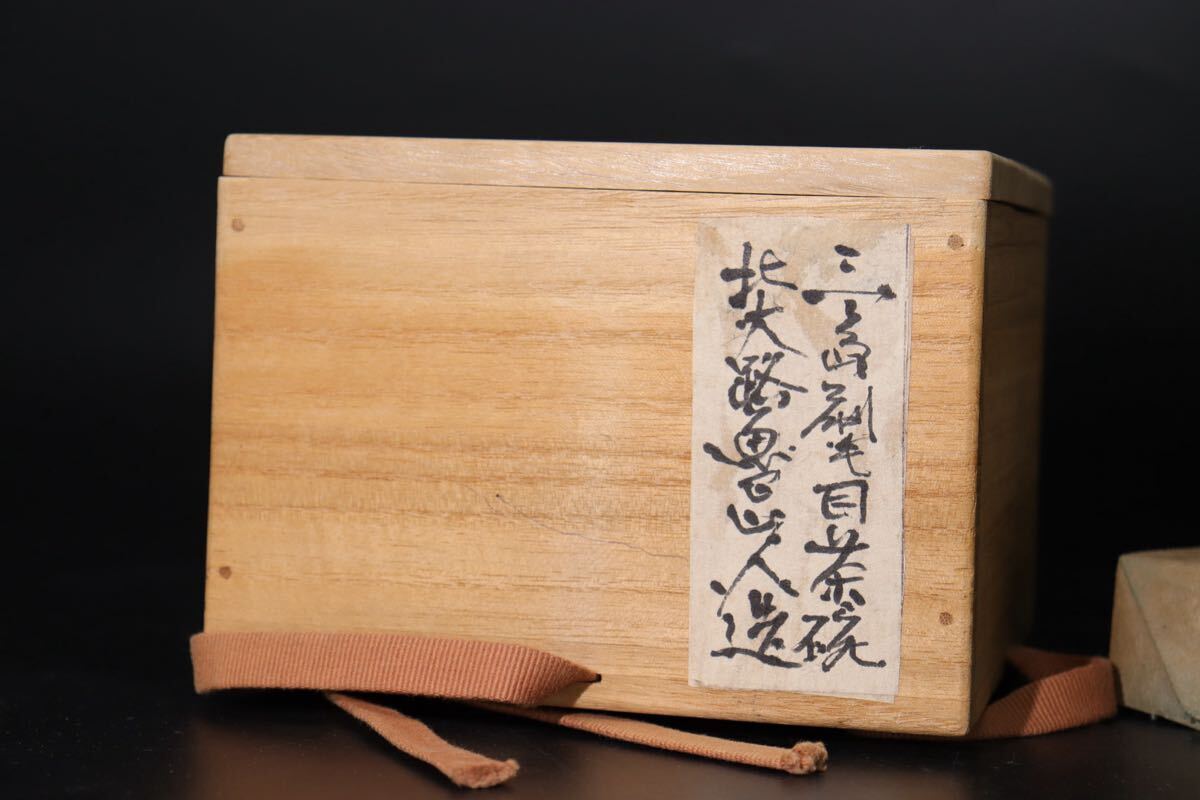 三島刷毛目茶碗
北大路魯山人造